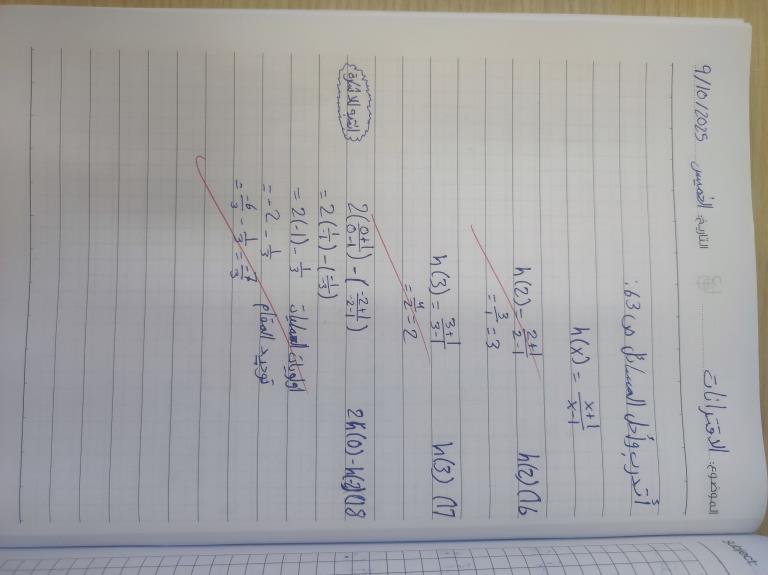 الموضوع: الاقترانات
التاريخ: الخميس 9/10/2025
أتدرب وأحل المسائل ص 63:
h(x) = \frac{x+1}{x-1}
16) h(2)
h(2) = \frac{2+1}{2-1}
= \frac{3}{1} = 3
17) h(3)
h(3) = \frac{3+1}{3-1}
= \frac{4}{2} = 2
18) 2h(0) - h(-2)
2(\frac{0+1}{0-1}) - (\frac{-2+1}{-2-1})
= 2(\frac{1}{-1}) - (\frac{-1}{-3})
= 2(-1) - \frac{1}{3} أولويات العمليات
= -2 - \frac{1}{3}
توحيد المقام
= \frac{-6}{3} - \frac{1}{3} = \frac{-7}{3}
subject